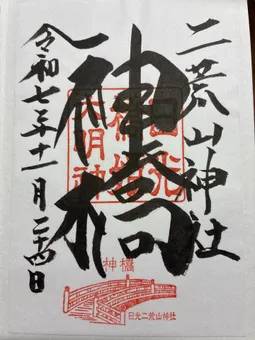 二荒山神社
神橋
令和七年十一月二十四日
神橋
日光二荒山神社